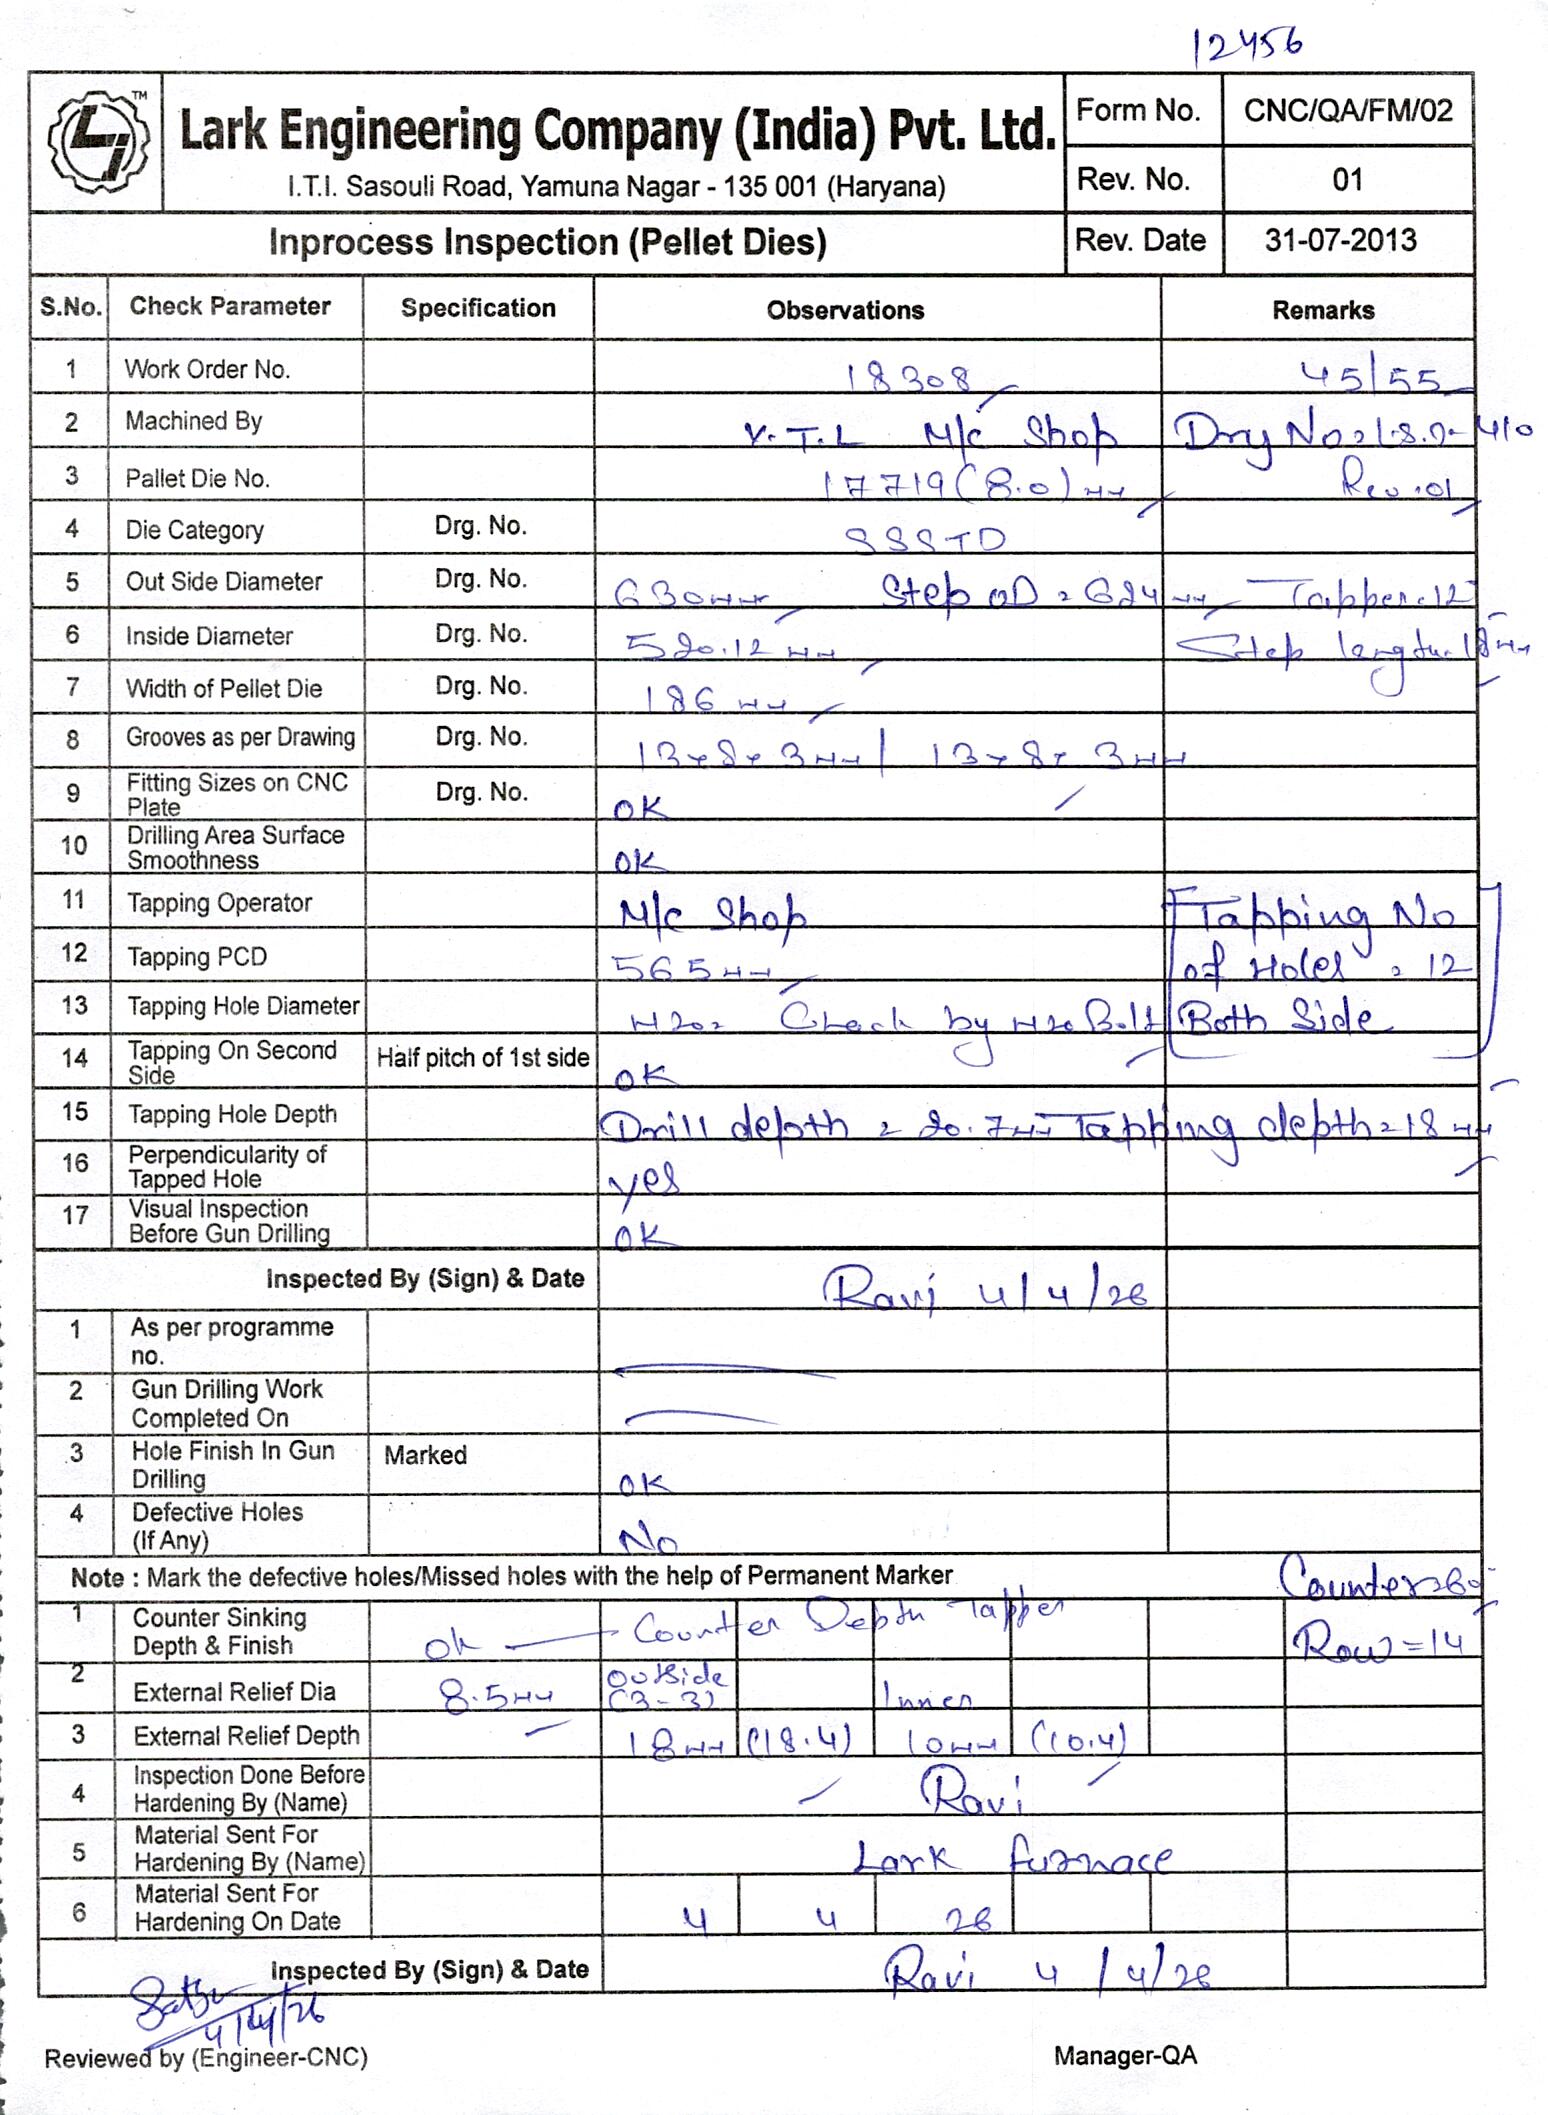 12456
LI TM
Lark Engineering Company (India) Pvt. Ltd.
I.T.I. Sasouli Road, Yamuna Nagar - 135 001 (Haryana)
Form No. CNC/QA/FM/02
Rev. No. 01
Inprocess Inspection (Pellet Dies) Rev. Date 31-07-2013
S.No. Check Parameter Specification Observations Remarks
1 Work Order No. 18308 45/55
2 Machined By V.T.L M/c Shop Drg No=
3 Pallet Die No. 17719 (8.0) mm Rev.01
4 Die Category Drg. No. SSSTD
5 Out Side Diameter Drg. No. 630mm Step OD = 624mm Tapper=12
6 Inside Diameter Drg. No. 520.12 mm Step length=18mm
7 Width of Pellet Die Drg. No. 186 mm
8 Grooves as per Drawing Drg. No. 13x8x3mm / 13x8x3mm
9 Fitting Sizes on CNC Plate Drg. No. OK
10 Drilling Area Surface Smoothness OK
11 Tapping Operator M/c Shop Tapping No
12 Tapping PCD 565mm of Holes = 12
13 Tapping Hole Diameter M20= Check by M20 Bolt Both Side
14 Tapping On Second Side Half pitch of 1st side OK
15 Tapping Hole Depth Drill depth = 20.7mm Tapping depth=18mm
16 Perpendicularity of Tapped Hole yes
17 Visual Inspection Before Gun Drilling OK
Inspected By (Sign) & Date Ravi 4/4/26
1 As per programme no.
2 Gun Drilling Work Completed On
3 Hole Finish In Gun Drilling Marked OK
4 Defective Holes (If Any) No
Note : Mark the defective holes/Missed holes with the help of Permanent Marker
1 Counter Sinking Depth & Finish ok Counter Depth Tapper Row=14
2 External Relief Dia 8.5mm Outside (3-3) Inner
3 External Relief Depth 18mm (18.4) 10mm (10.4)
4 Inspection Done Before Hardening By (Name) Ravi
5 Material Sent For Hardening By (Name) Lark furnace
6 Material Sent For Hardening On Date 4 4 26
Inspected By (Sign) & Date Ravi 4/4/26
4/4/26
Reviewed by (Engineer-CNC) Manager-QA